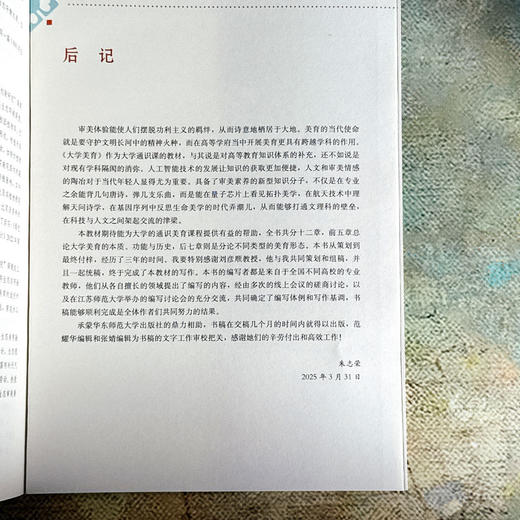 后 记
审美体验能使人们摆脱功利主义的羁绊,从而诗意地栖居于大地。美育的当代使命
就是要守护文明长河中的精神火种,而在高等学府当中开展美育更具有跨越学科的作用。
《大学美育》作为大学通识课的教材,与其说是对高等教育知识体系的补充,还不如说是
对现有学科隔阂的消弥。人工智能技术的发展让知识的获取更加便捷,人文和审美情感
的陶冶对于当代年轻人显得尤为重要。具备了审美素养的新型知识分子,不仅是在专业
之余能背几句唐诗,弹几支乐曲,而是能在量子芯片上看见拓扑美学,在航天技术中理
解天问诗学,在基因序列中反思生命美学的时代弄潮儿,从而能够打通文理科的壁垒,
在科技与人文之间架起交流的津梁。
本教材期待能为大学的通识美育课程提供有益的帮助,全书共分十二章,前五章总
论大学美育的本质、功能与历史,后七章则是分论不同类型的美育形态。本书从策划到
最终付梓,经历了三年的时间。我要特别感谢刘彦顺教授,他与我共同策划和组稿,并
且一起统稿,终于完成了本教材的写作。本书的编写者都是来自于全国不同高校的专业
教师,他们从各自擅长的领域提出了编写的内容,经由多次的线上会议的磋商讨论,以
及在江苏师范大学举办的编写讨论会的充分交流,共同确定了编写体例和写作基调。书
稿能够顺利完成是全体作者们共同努力的结果。
承蒙华东师范大学出版社的鼎力相助,书稿在交稿几个月的时间内就得以出版,范
耀华编辑和张婧编辑为书稿的文字工作审校把关,感谢她们的辛劳付出和高效工作!
朱志荣
2025 年 3 月 31 日